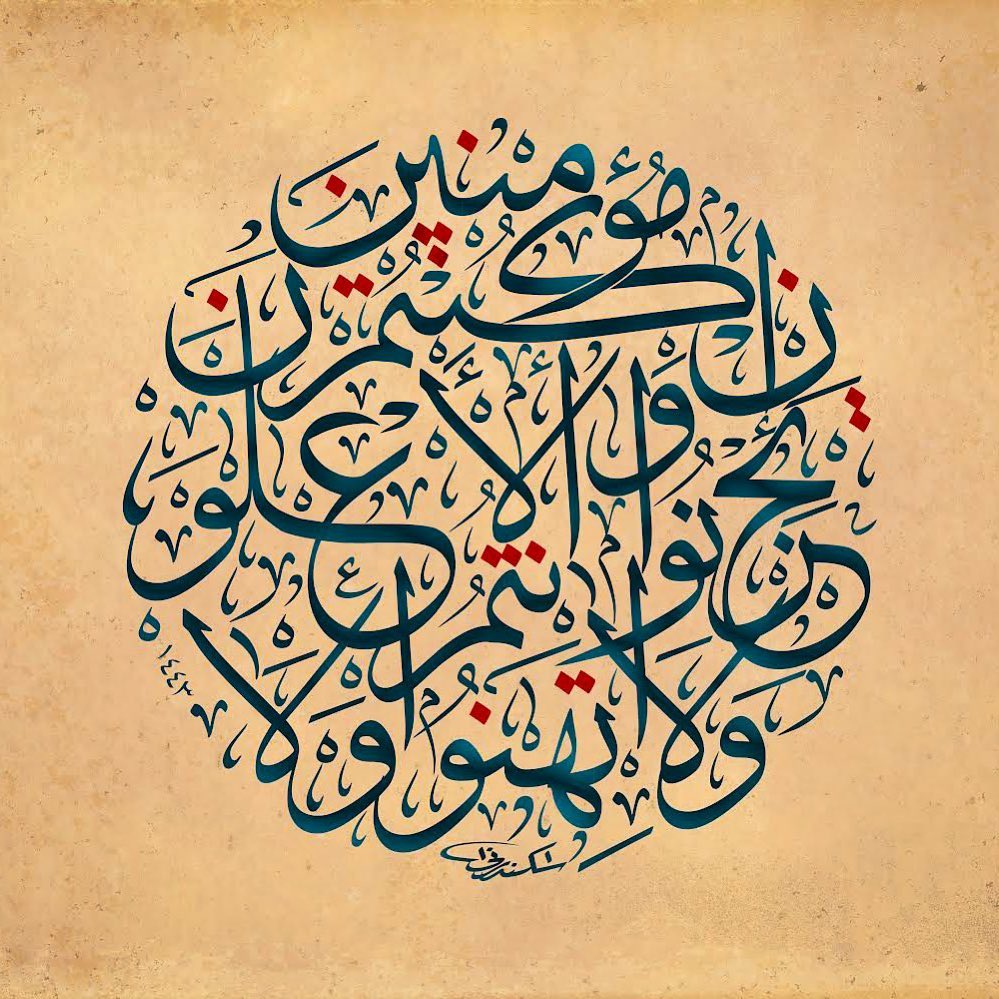 وَلَا تَهِنُوا وَلَا تَحْزَنُوا وَأَنْتُمُ الْأَعْلَوْنَ إِنْ كُنْتُمْ مُؤْمِنِينَ
١٤٤٣